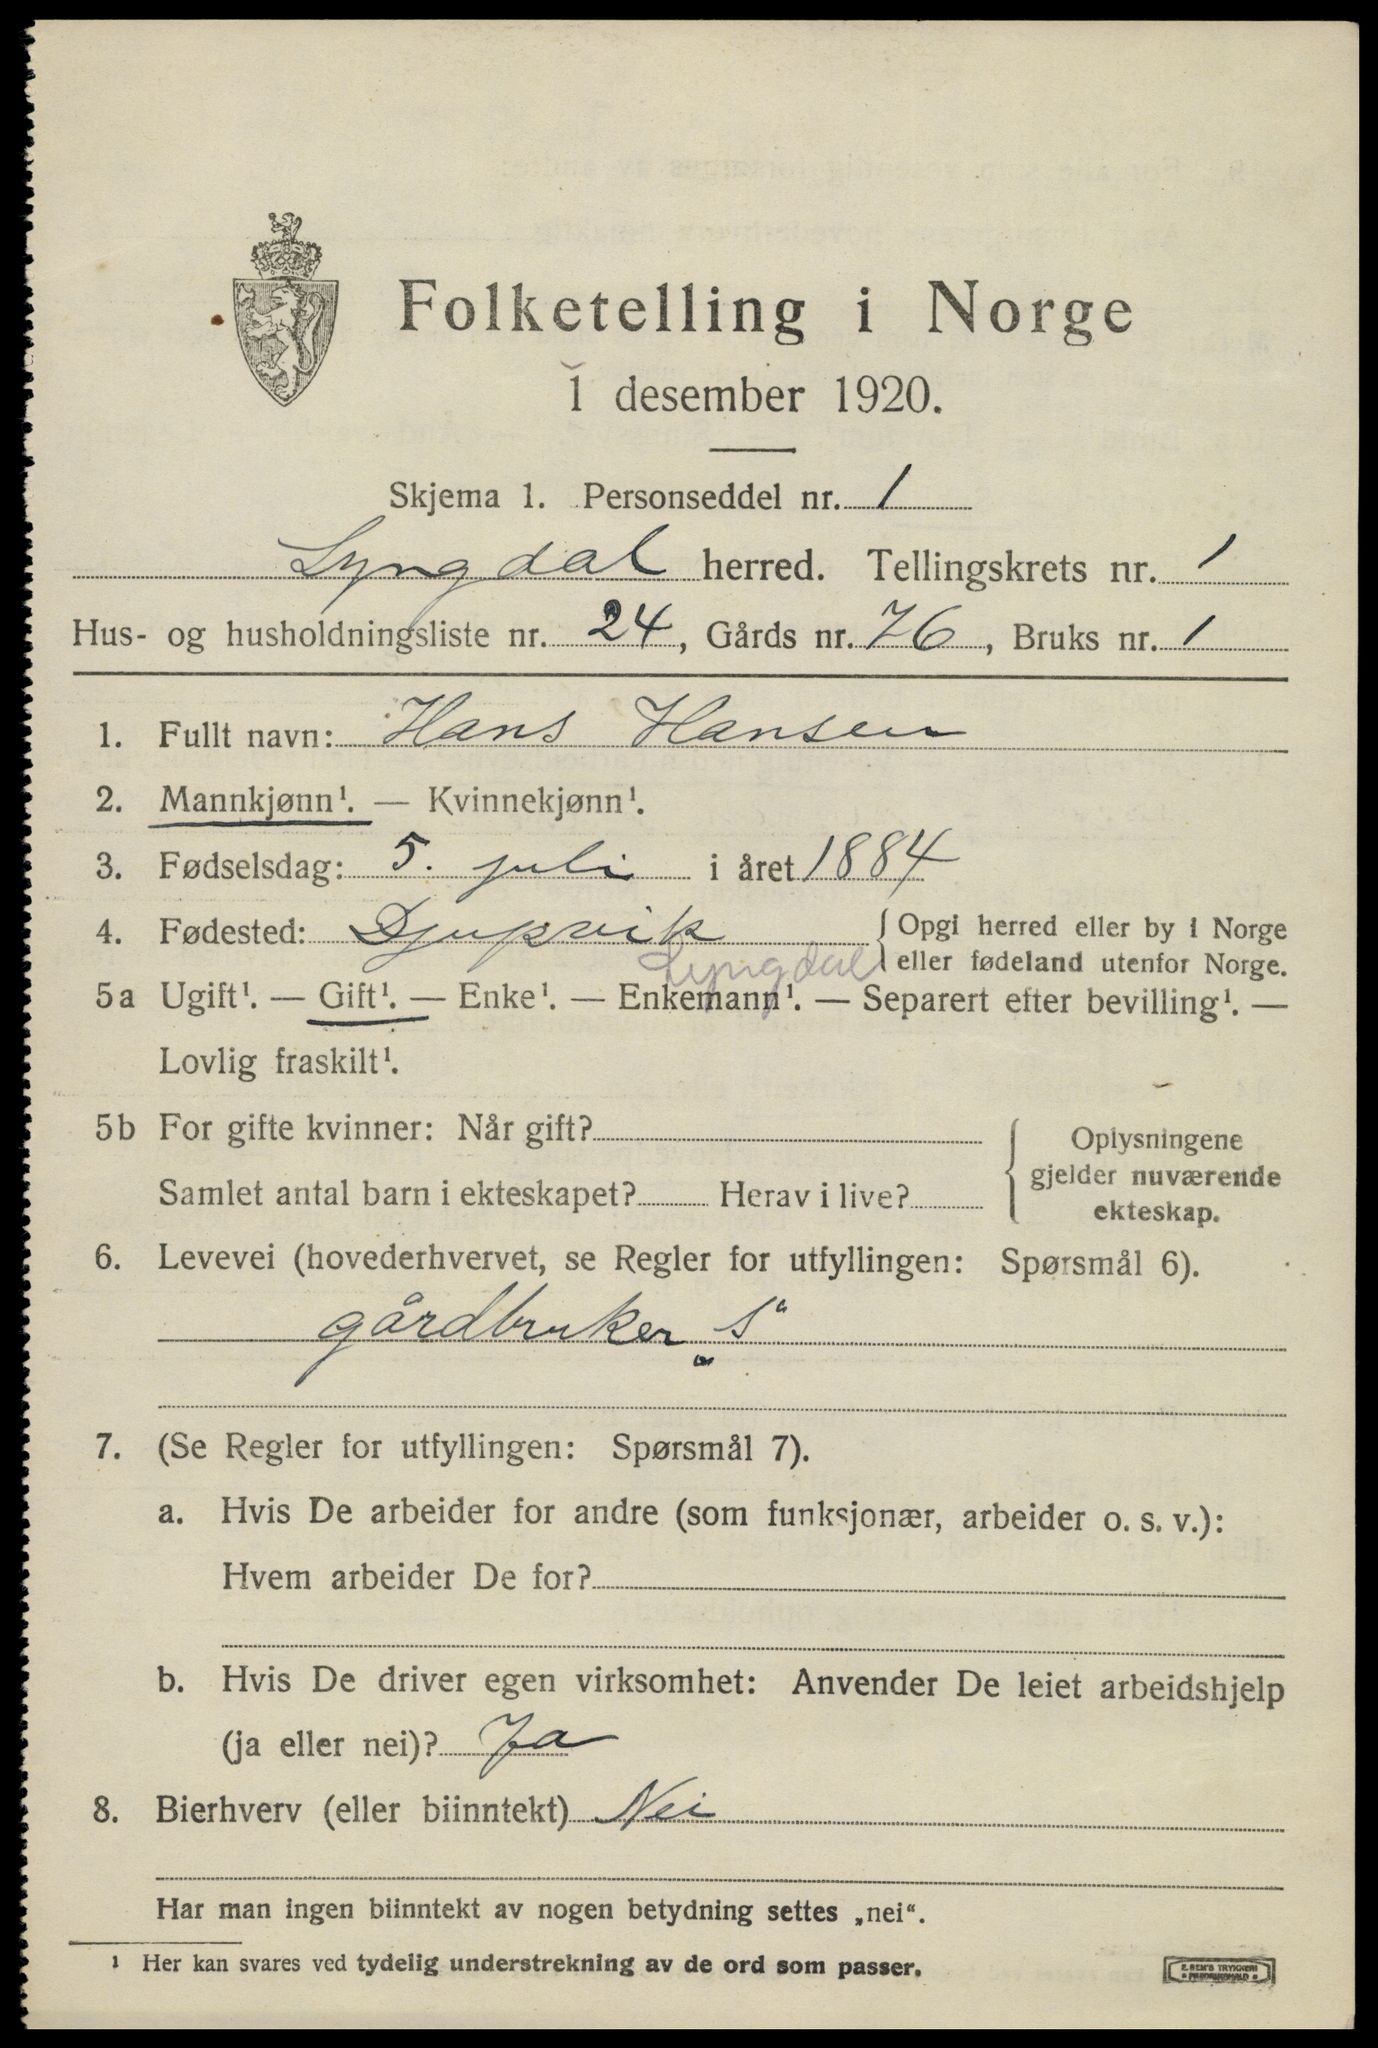 Folketelling i Norge
1 desember 1920.
Skjema 1. Personseddel nr. 1
Lyngdal herred. Tellingskrets nr. 1
Hus- og husholdningsliste nr. 24, Gårds nr. 76, Bruks nr. 1
1. Fullt navn: Hans Hansen
2. Mannkjønn¹. — Kvinnekjønn¹.
3. Fødselsdag: 5. juli i året 1884
4. Fødested: Djupvik { Opgi herred eller by i Norge
Lyngdal eller fødeland utenfor Norge.
5a Ugift¹. — Gift¹. — Enke¹. — Enkemann¹. — Separert efter bevilling¹. —
Lovlig fraskilt¹.
5b For gifte kvinner: Når gift?
Samlet antal barn i ekteskapet? Herav i live?
{ Oplysningene
gjelder nuværende
ekteskap.
6. Levevei (hovederhvervet, se Regler for utfyllingen: Spørsmål 6).
gårdbruker "s"
7. (Se Regler for utfyllingen: Spørsmål 7).
a. Hvis De arbeider for andre (som funksjonær, arbeider o. s. v.):
Hvem arbeider De for?
b. Hvis De driver egen virksomhet: Anvender De leiet arbeidshjelp
(ja eller nei)? Ja
8. Bierhverv (eller biinntekt) Nei
Har man ingen biinntekt av nogen betydning settes „nei“.
¹ Her kan svares ved tydelig understrekning av de ord som passer.
E. SEM'S TRYKKERI
• FREDRIKSHALD •